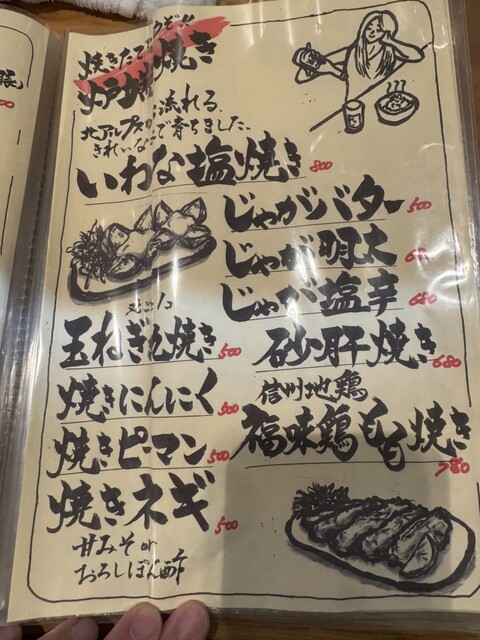 焼きたて
炉端焼き
流れる、
北アルプスの
きれいな で育ちました。
いわな塩焼き 800
じゃがバター 500
じゃが明太 680
じゃが塩辛 680
玉ねぎ丸焼き 500
砂肝焼き 680
焼きにんにく 500
信州地鶏
福味鶏もも焼き 780
焼きピーマン 500
焼きネギ 500
甘みそor
おろしぽん酢